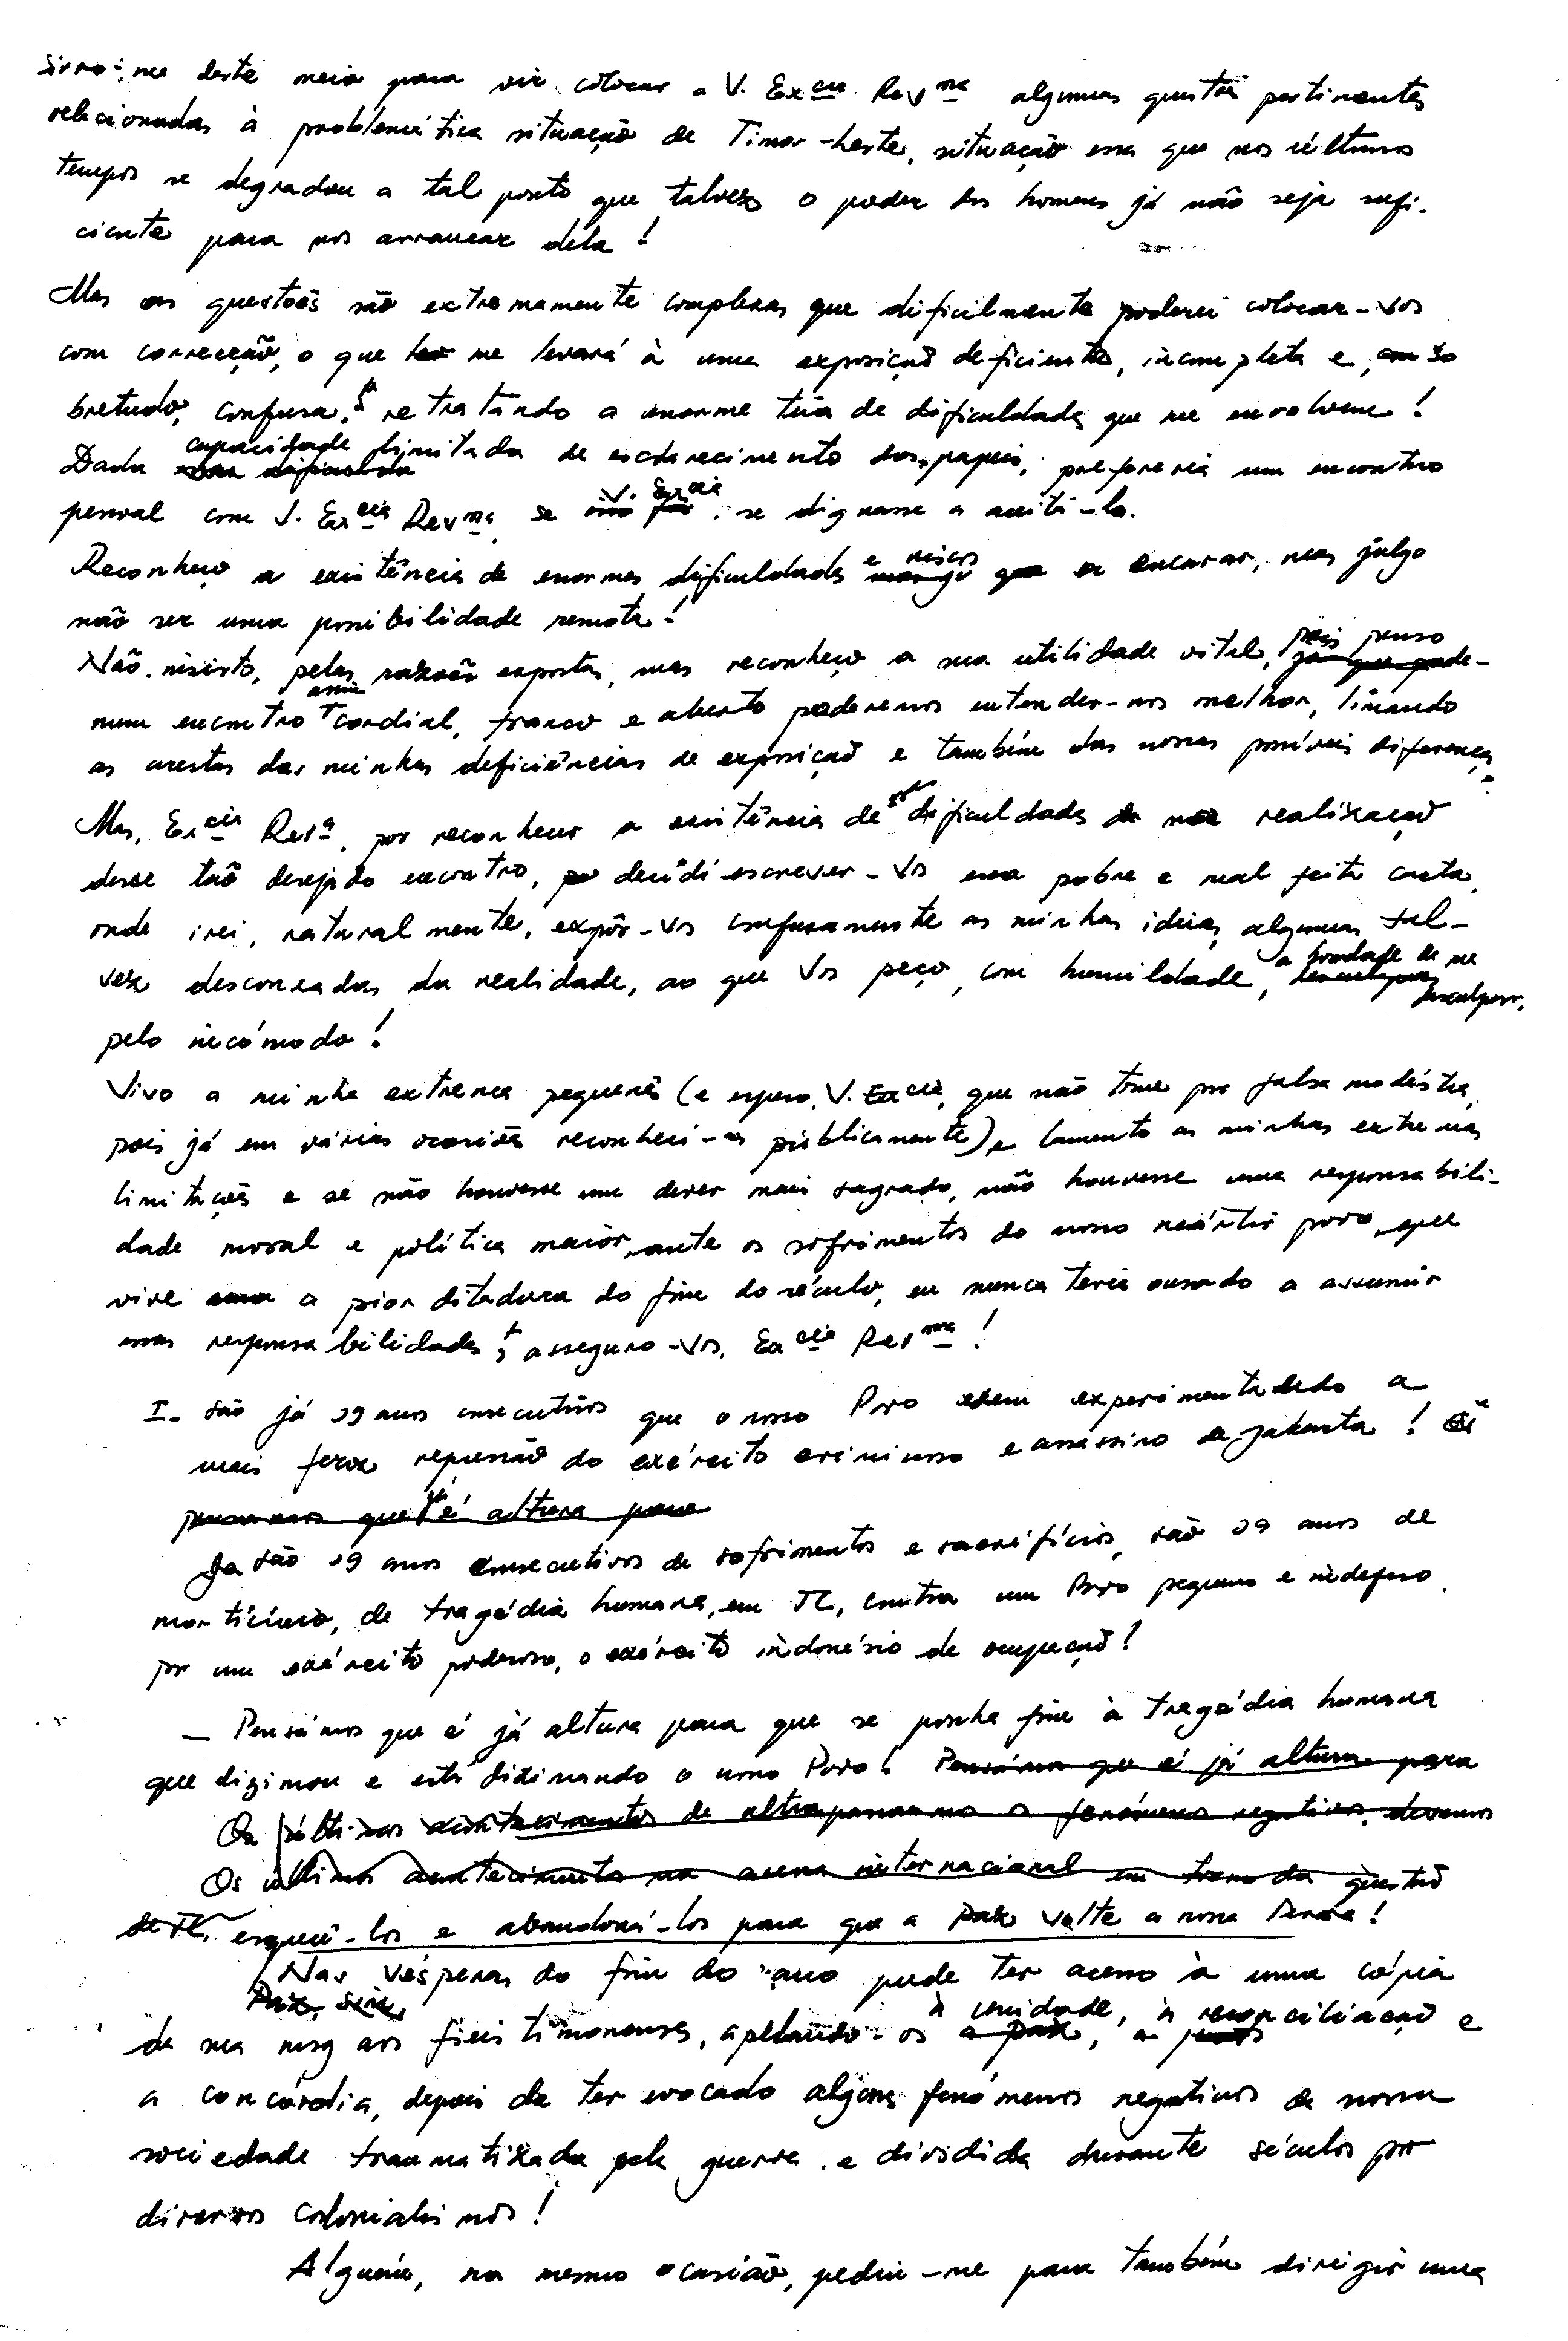 Sirvo-me deste meio para vir colocar a V. Excia. Revma algumas questões pertinentes
relacionadas à problemática situação de Timor-Leste, situação essa que nos últimos
tempos se degradou a tal ponto que talvez o poder dos homens já não seja sufi-
ciente para nos arrancar dela!
Mas as questões são extremamente complexas que dificilmente poderei colocar-vos
com correcção, o que me levará à uma exposição deficiente, incompleta e, so
bretudo, confusa, retratando a enorme teia de dificuldades que me envolvem!
Dada capacidade limitada de esclarecimento dos papeis, preferia um encontro
pessoal com V. Excia Revma, se V. Excia. se dignasse a aceitá-lo.
Reconheço a existência de enormes dificuldades e riscos a encarar, mas julgo
não ser uma possibilidade remota!
Não insisto, pelas razões expostas, mas reconheço a sua utilidade vital, pois penso
num encontro assim cordial, franco e aberto poderemos entender-nos melhor, limando
as arestas das minhas deficiências de exposição e também das nossas possíveis diferenças.
Mas, Excia Revª, por reconhecer a existência de dificuldades na realização
desse tão desejado encontro, decidi escrever-Vos uma pobre e mal feita carta,
onde irei, naturalmente, expôr-vos confusamente as minhas ideias, algumas tal-
vez desconexadas da realidade, ao que Vos peço, com humildade, a bondade de me desculpar,
pelo incómodo!
Vivo a minha extrema pequenês (e espero, V. Excia, que não tome por falsa modéstia,
pois já em várias ocasiões reconheci-as públicamente) e lamento as minhas extremas
limitações e se não houvesse um dever mais sagrado, não houvesse uma responsabili-
dade moral e política maior, ante os sofrimentos do nosso mártir povo, que
vive a pior ditadura do fim do século, eu nunca teria ousado a assumir
essas responsabilidades, asseguro-Vos, Excia Revma!
I- São já 19 anos consecutivos que o nosso Povo vem experimentadedo a
mais feroz repressão do exército criminoso e assassino de Jakarta!
pensamos que já é altura para
Já são 19 anos consecutivos de sofrimentos e sacrifícios, são 19 anos de
morticínio, de tragédia humana, em TL, contra um Povo pequeno e indefeso
por um exército poderoso, o exército indonésio de ocupação!
- Pensámos que é já altura para que se ponha fim à tragédia humana
que dizimou e está dizimando o nosso Povo! Pensámos que é já altura para
Os últimos acontecimentos de ultrapassarmos os fenómenos negativos, devemos
Os últimos acontecimentos na arena internacional em torno da questão
de TL, esquecê-los e abandoná-los para que a paz volte a nossa Pátria!
Nas vésperas do fim do ano pude ter acesso à uma cópia
da sua msg aos fieis timorenses, apelando-os à unidade, à reconciliação e
a concórdia, depois de ter evocado alguns fenómenos negativos da nossa
sociedade traumatizada pela guerra e dividida durante séculos por
diversos colonialismos!
Alguém, na mesma ocasião, pediu-me para também dirigir uma